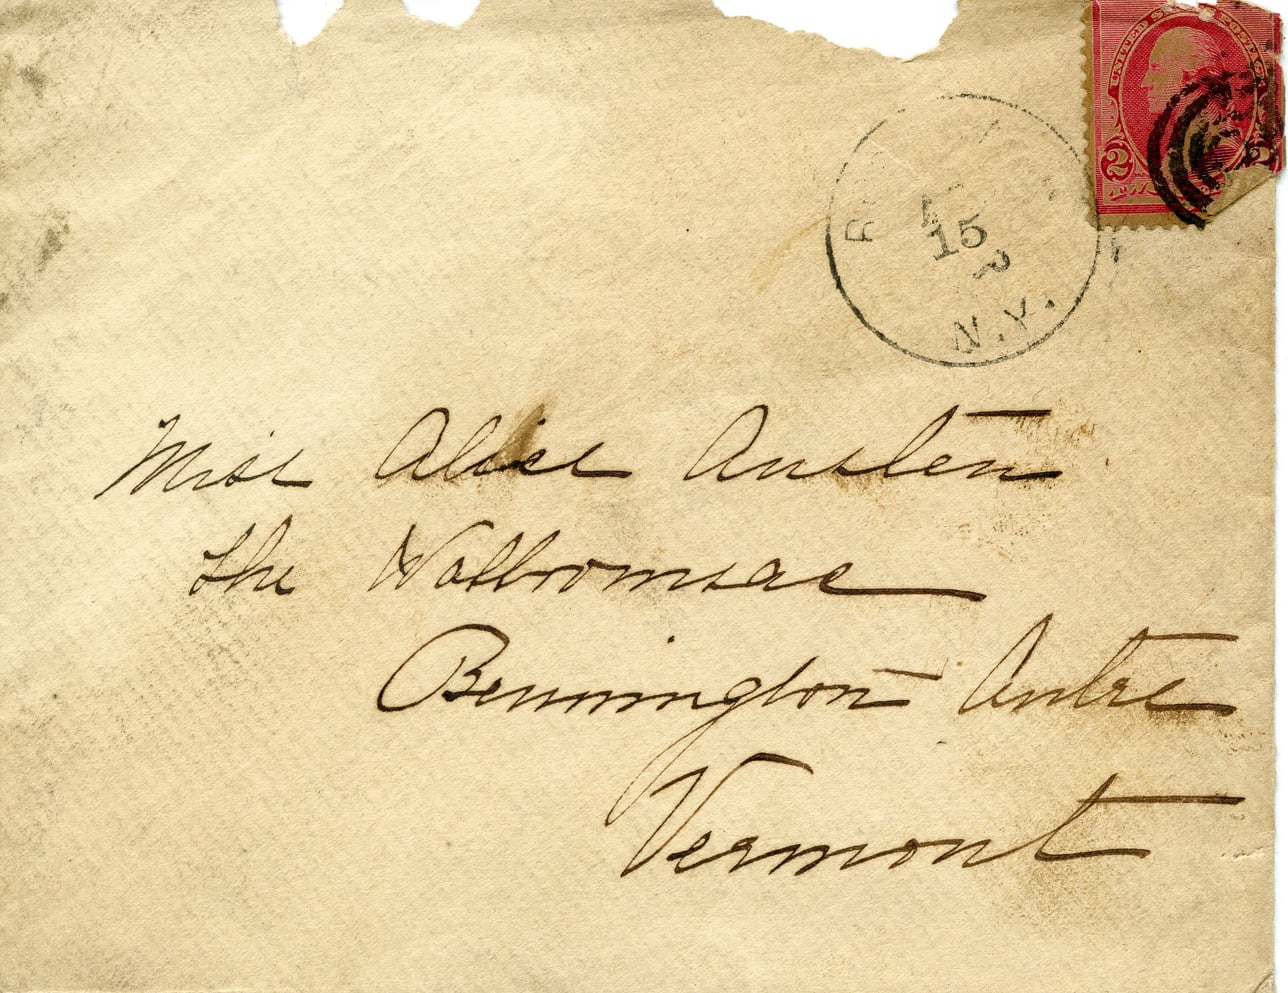 UNITED STATES POSTAGE
2 2
15
N.Y.
Miss Alice Austen
The Walbromsac
Bennington Centre
Vermont